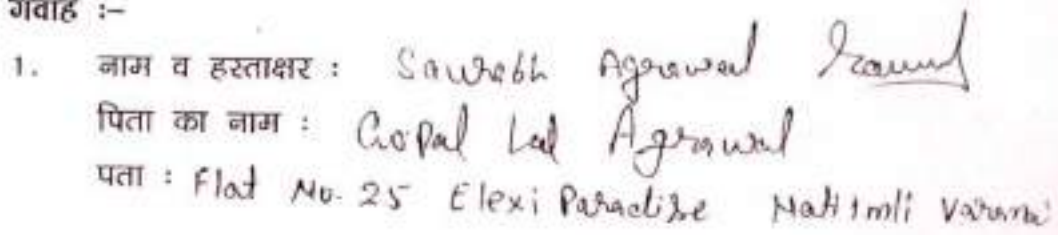 गवाह :-
1. नाम व हस्ताक्षर : Saurabh Agrawal
पिता का नाम : Gopal Lal Agrawal
पता : Flat No. 25 Elexi Paradise